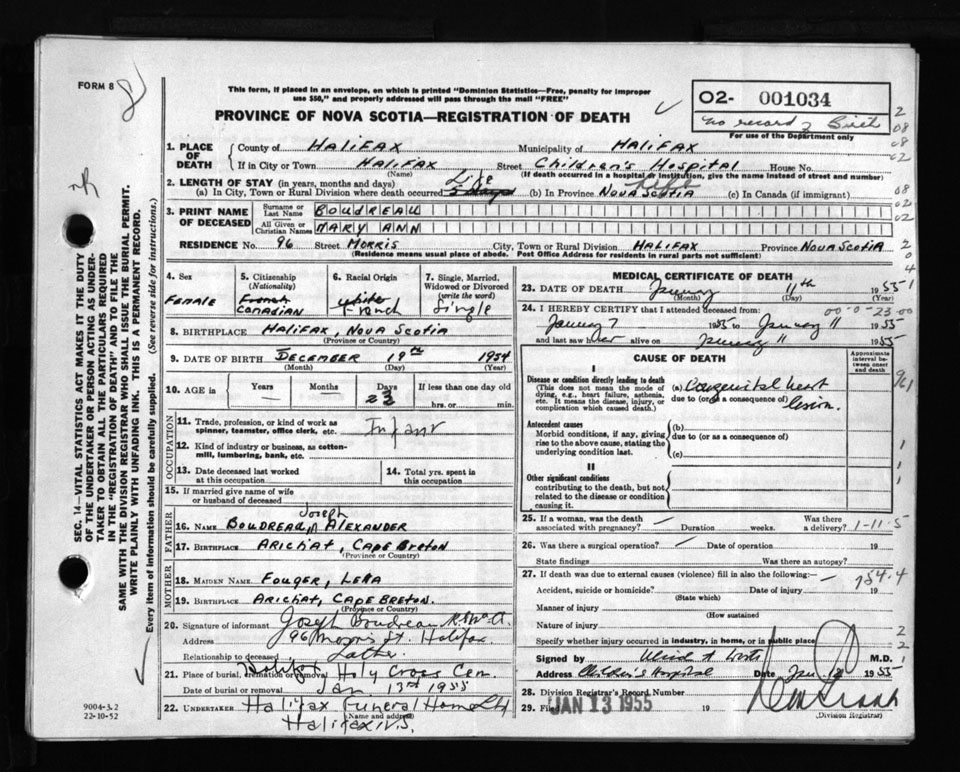 FORM 8
This form, if placed in an envelope, on which is printed "Dominion Statistics—Free, penalty for improper
use $50," and properly addressed will pass through the mail "FREE"
PROVINCE OF NOVA SCOTIA—REGISTRATION OF DEATH
02- 001034
no record of Birth
For use of the Department only
1. PLACE OF DEATH
County of HALIFAX Municipality of HALIFAX
If in City or Town HALIFAX Street Children's Hospital House No.
(Name) (If death occurred in a hospital or institution, give the name instead of street and number)
2. LENGTH OF STAY (in years, months and days)
(a) In City, Town or Rural Division where death occurred Life 5 days (b) In Province Nova Scotia Life (c) In Canada (if immigrant)
3. PRINT NAME OF DECEASED
Surname or Last Name BOUDREAU
All Given or Christian Names MARY ANN
RESIDENCE No. 96 Street MORRIS City, Town or Rural Division HALIFAX Province NOVA SCOTIA
(Residence means usual place of abode. Post Office Address for residents in rural parts not sufficient)
4. Sex
Female
5. Citizenship (Nationality)
French
Canadian
6. Racial Origin
White
French
7. Single, Married, Widowed or Divorced (write the word)
Single
8. BIRTHPLACE HALIFAX, NOVA SCOTIA
(Province or Country)
9. DATE OF BIRTH DECEMBER 19th 1954
(Month) (Day) (Year)
10. AGE in
Years Months Days If less than one day old
— — 23 hrs. or min.
OCCUPATION
11. Trade, profession, or kind of work as spinner, teamster, office clerk, etc. Infant
12. Kind of industry or business, as cotton-mill, lumbering, bank, etc.
13. Date deceased last worked at this occupation
14. Total yrs. spent in this occupation
15. If married give name of wife or husband of deceased
FATHER
16. NAME BOUDREAU, Joseph ALEXANDER
17. BIRTHPLACE ARICHAT, CAPE BRETON
(Province or Country)
MOTHER
18. MAIDEN NAME FOUGER, LENA
19. BIRTHPLACE ARICHAT, CAPE BRETON.
(Province or Country)
20. Signature of informant Joseph Boudreau
Address 96 Morris St. Halifax.
Relationship to deceased Father
21. Place of burial, cremation or removal Halifax Holy Cross Cem.
Date of burial or removal Jan 13th 1955
22. UNDERTAKER Halifax Funeral Home Ltd
(Name and address)
Halifax N.S.
MEDICAL CERTIFICATE OF DEATH
23. DATE OF DEATH January 11th 1955
(Month) (Day) (Year)
24. I HEREBY CERTIFY that I attended deceased from:
00-0-23-00
January 7 1955 to January 11 1955
and last saw her alive on January 11 1955
CAUSE OF DEATH
Approximate interval between onset and death
I
Disease or condition directly leading to death
(This does not mean the mode of dying, e.g., heart failure, asthenia, etc. It means the disease, injury, or complication which caused death.)
(a) Congenital heart
due to (or as a consequence of) lesion.
Antecedent causes
Morbid conditions, if any, giving rise to the above cause, stating the underlying condition last.
(b)
due to (or as a consequence of)
(c)
II
Other significant conditions
contributing to the death, but not related to the disease or condition causing it.
25. If a woman, was the death associated with pregnancy? — Duration weeks. Was there a delivery? 1-11-5
26. Was there a surgical operation? — Date of operation 19
State findings Was there an autopsy?
27. If death was due to external causes (violence) fill in also the following:—
754.4
Accident, suicide or homicide? Date of injury 19
(State which)
Manner of injury
(How sustained)
Nature of injury
Specify whether injury occurred in industry, in home, or in public place
Signed by M.D.
Address Children's Hospital Date Jan. 1955
28. Division Registrar's Record Number
29. Filed JAN 13 1955 19
(Division Registrar)
SEC. 14—VITAL STATISTICS ACT MAKES IT THE DUTY
OF THE UNDERTAKER OR PERSON ACTING AS UNDER-
TAKER TO OBTAIN ALL THE PARTICULARS REQUIRED
IN THE "REGISTRATION OF DEATH" AND TO FILE THE
SAME WITH THE DIVISION REGISTRAR WHO SHALL ISSUE THE BURIAL PERMIT.
WRITE PLAINLY WITH UNFADING INK. THIS IS A PERMANENT RECORD.
Every item of information should be carefully supplied. (See reverse side for instructions.)
9004-3.2
22-10-52